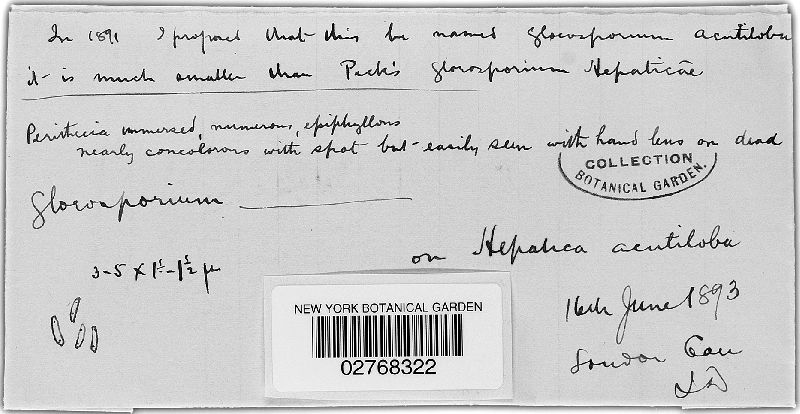 In 1891 I proposed that this be named Gloeosporium acutiloba
it is much smaller than Peck's Gloeosporium Hepaticae
Perithecia immersed, numerous, epiphyllous
nearly concolorous with spot but easily seen with hand lens on dead
COLLECTION
BOTANICAL GARDEN.
Gloeosporium
on Hepatica acutiloba
3-5 × 1½-1½ µ
16th June 1893
London Can
JD
NEW YORK BOTANICAL GARDEN
02768322